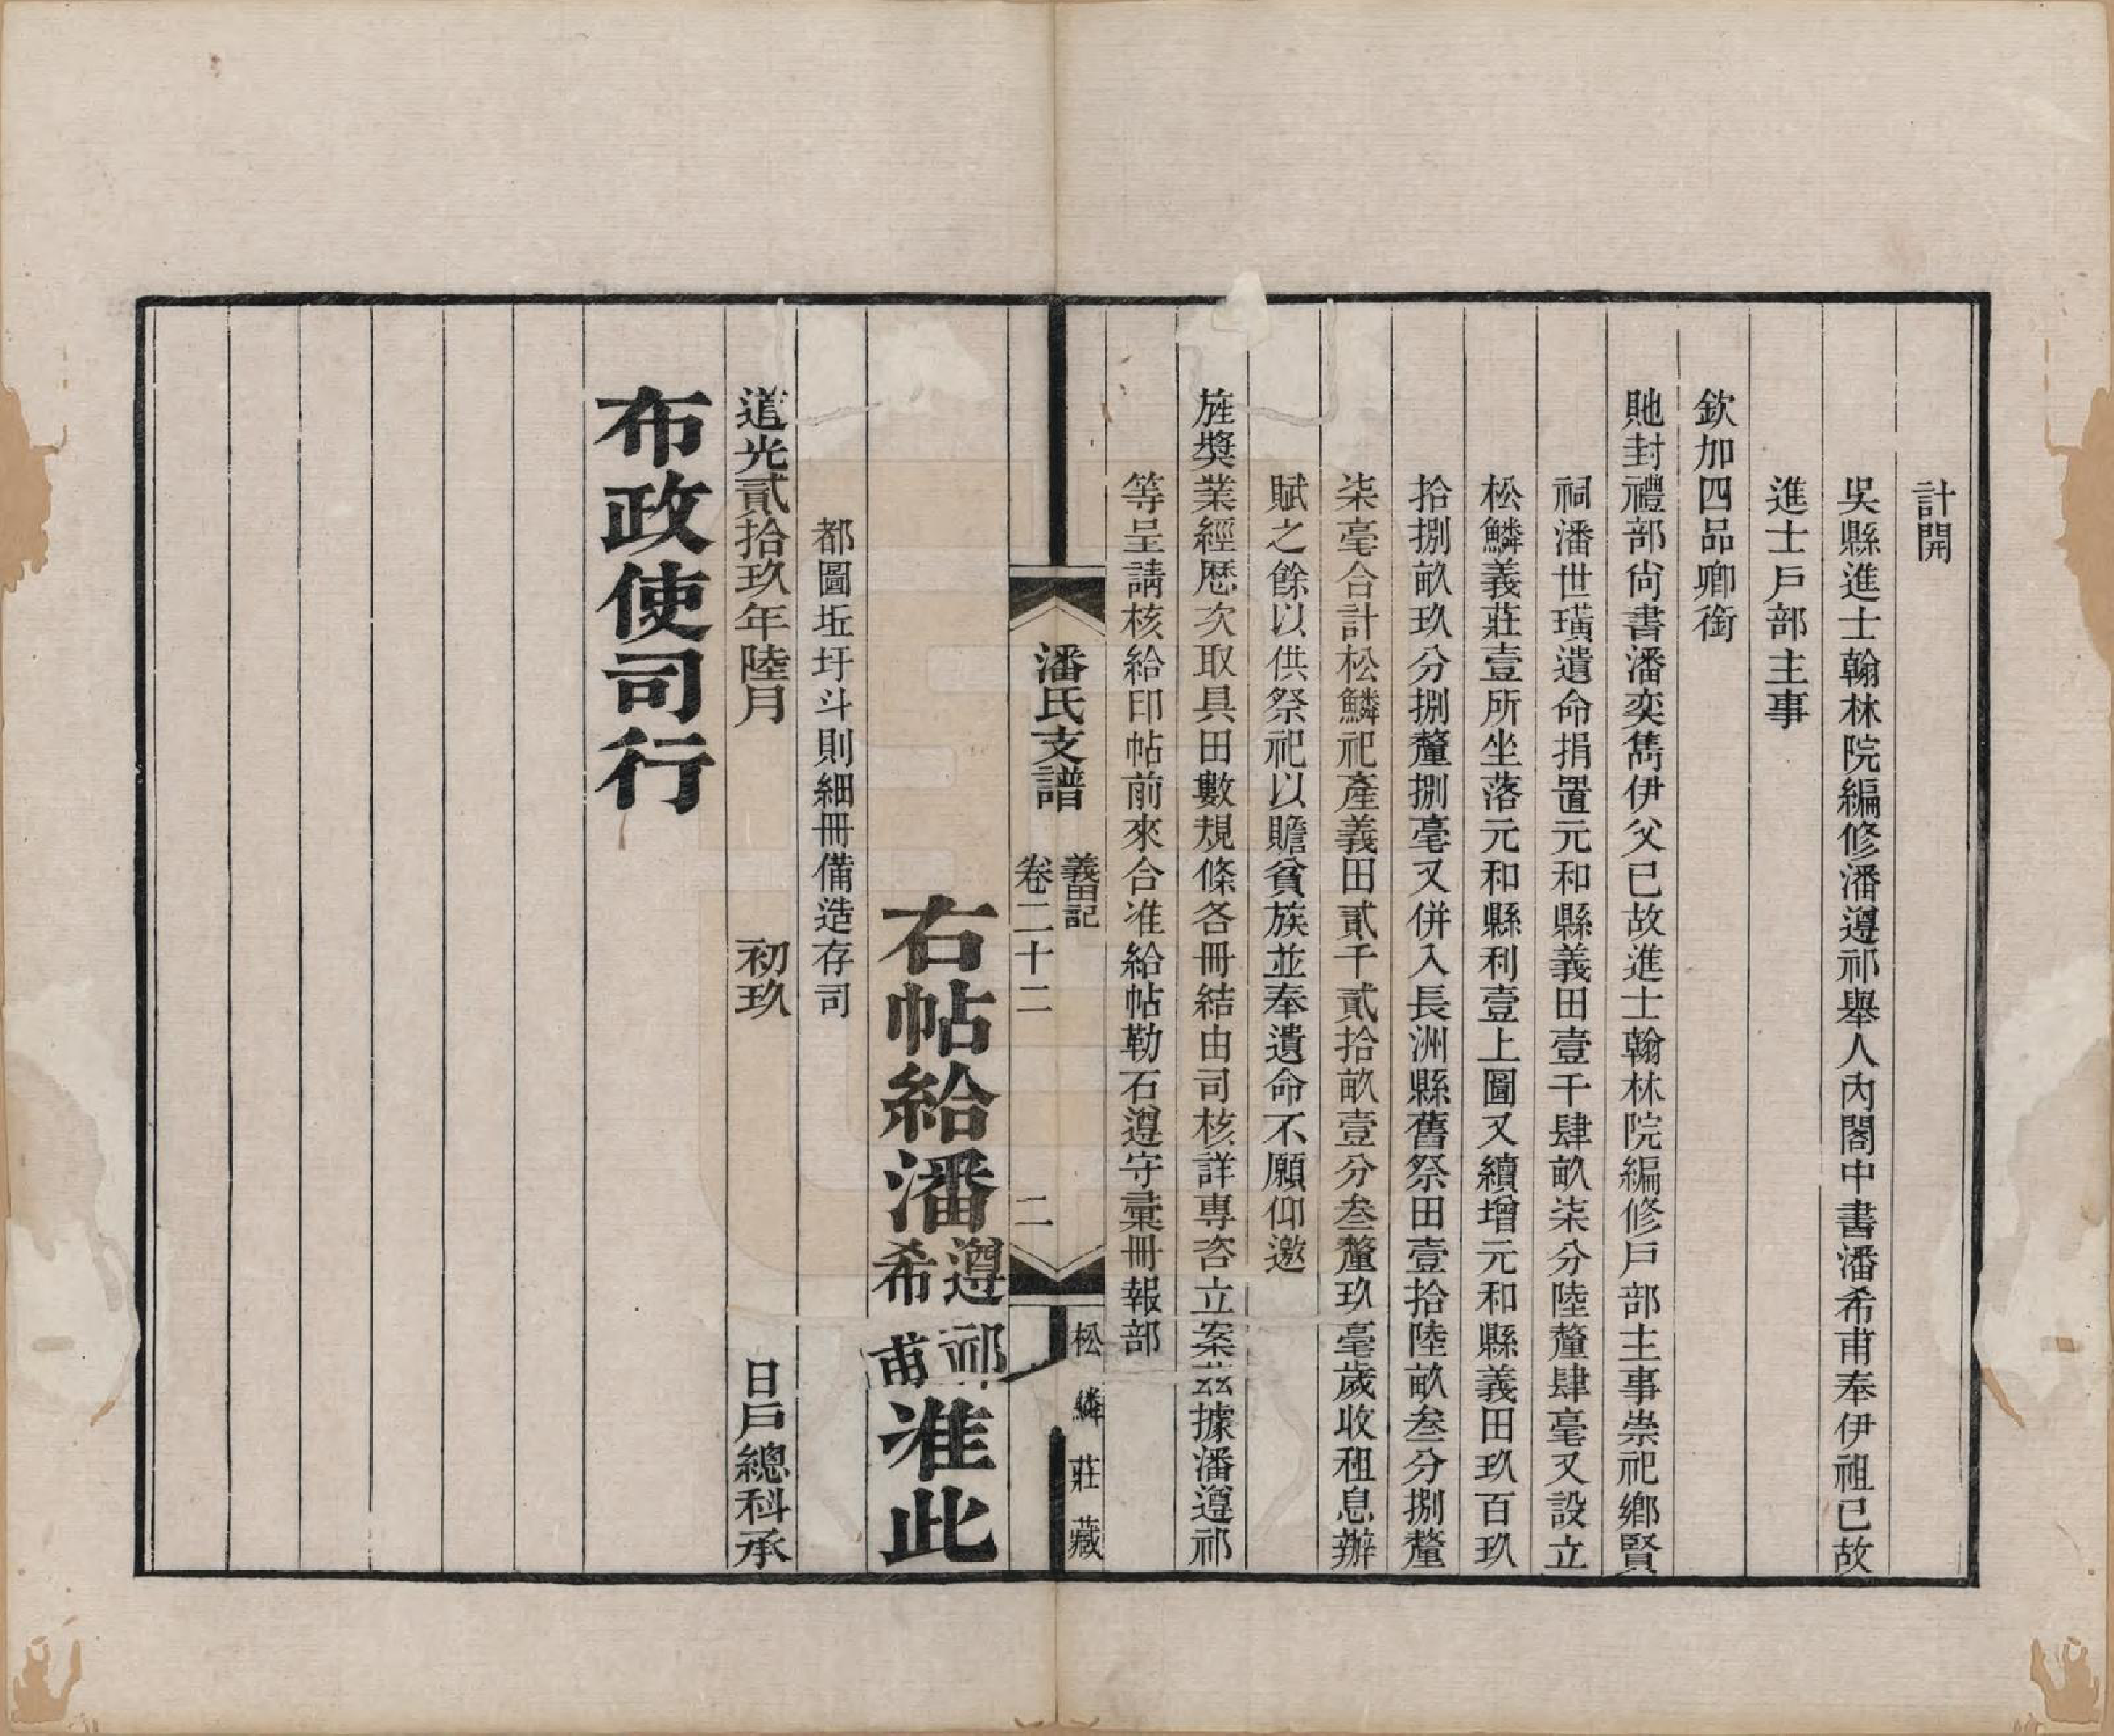 計開
吳縣進士翰林院編修潘遵祁舉人內閣中書潘希甫奉伊祖已故
進士戶部主事
欽加四品卿銜
貤封禮部尙書潘奕雋伊父已故進士翰林院編修戶部主事崇祀鄉賢
祠潘世璜遺命捐置元和縣義田壹千肆畝柒分陸釐肆毫又設立
松鱗義莊壹所坐落元和縣利壹上圖又續增元和縣義田玖百玖
拾捌畝玖分捌釐捌毫又併入長洲縣舊祭田壹拾陸畝叁分捌釐
柒毫合計松鱗祀產義田貳千貳拾畝壹分叁釐玖毫歲收租息辦
賦之餘以供祭祀以贍貧族並奉遺命不願仰邀
旌獎業經歷次取具田數規條各冊結由司核詳專咨立案茲據潘遵祁
等呈請核給印帖前來合准給帖勒石遵守彙冊報部
潘氏支譜 義田記 卷二十二 二 松鱗莊藏
右帖給潘遵祁希甫准此
都圖坵圩斗則細冊備造存司
道光貳拾玖年陸月 初玖 日戶總科承
布政使司行